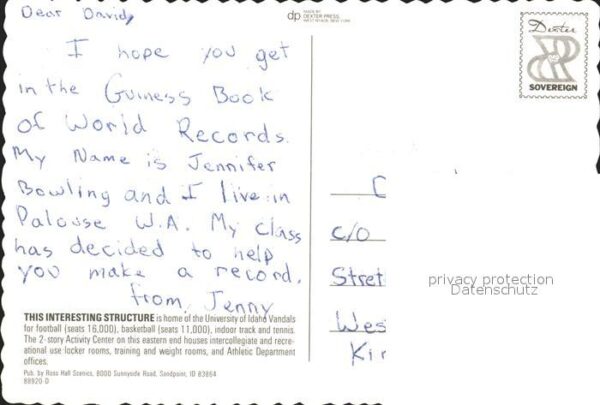 Dear David,
I hope you get
in the Guiness Book
of World Records.
My Name is Jennifer
Bowling and I live in
Palouse W.A. My class
has decided to help
you make a record.
from, Jenny
THIS INTERESTING STRUCTURE is home of the University of Idaho Vandals
for football (seats 16,000), basketball (seats 11,000), indoor track and tennis.
The 2-story Activity Center on this eastern end houses intercollegiate and recre-
ational use locker rooms, training and weight rooms, and Athletic Department
offices.
Pub. by Ross Hall Scenics, 8000 Sunnyside Road, Sandpoint, ID 83864
88920-D
dp
MADE BY
DEXTER PRESS
WEST NYACK, NEW YORK
Dexter
SOVEREIGN
C/O
Stret
Wes
Kir
privacy protection
Datenschutz